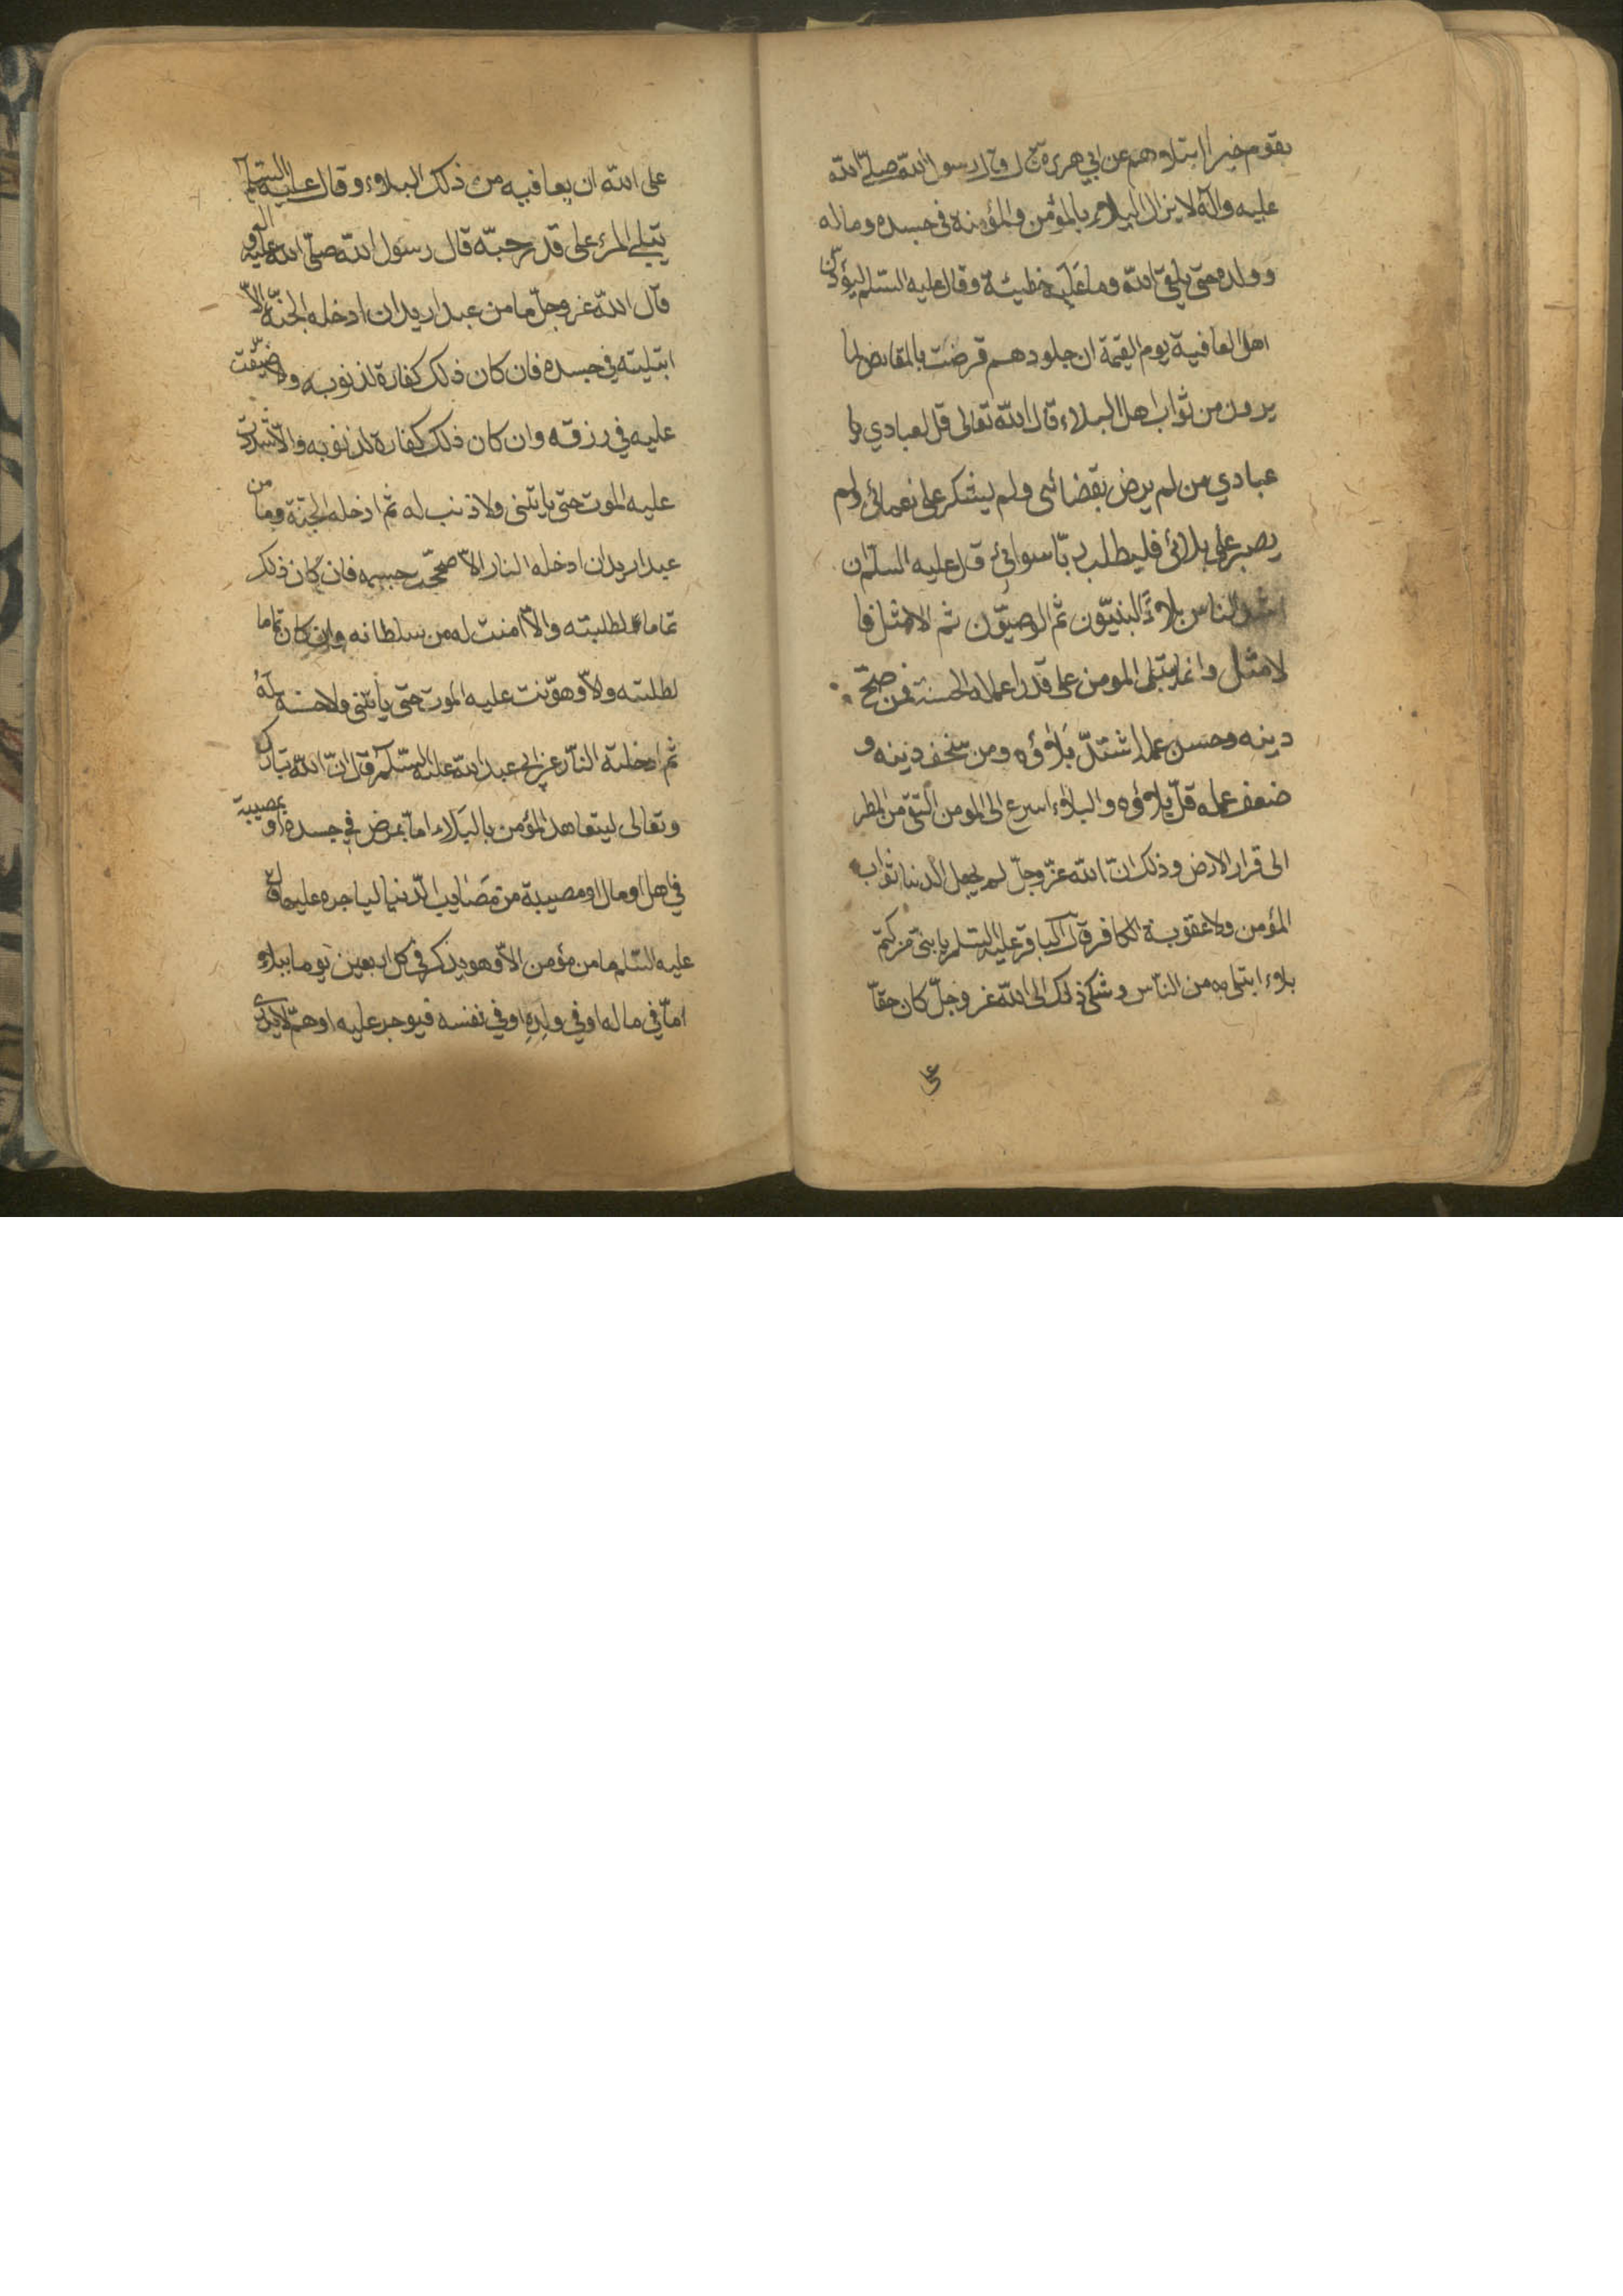 بقوم خيرا ابتلاهم عن ابي هريرة قال قال رسول الله صلّى الله
عليه وآله لا يزال البلاء بالمؤمن والمؤمنة في جسده وماله
وولده حتى يلقى الله وما عليه خطيئة وقال عليه السلم ليودّنّ
اهل العافية يوم القيمة ان جلودهم قرضت بالمقاريض لما
يرون من ثواب اهل البلاء قال الله تعالى قل لعبادي يا
عبادي من لم يرض بقضائي ولم يشكر على نعمائي ولم
يصبر على بلائي فليطلب ربّا سوائي قال عليه السلم ان
اشد الناس بلاء النبيّون ثم الوصيّون ثم الامثل فا
لامثل وانما يبتلى المومن على قدر اعماله الحسنة فمن صحّ
دينه وحسن عمله اشتدّ بلاؤه ومن سخف دينه و
ضعف عمله قلّ بلاؤه والبلاء اسرع الى المومن التقى من المطر
الى قرار الارض وذلك انّ الله عزّ وجلّ لم يجعل الدنيا ثواب
المؤمن ولا عقوبة الكافر قال الباقر عليه السلم يا بنىّ من كتم
بلاء ابتلى به من الناس وشكى ذلك الى الله عز وجلّ كان حقّا
على
على الله ان يعافيه من ذلك البلاء وقال عليه السلم
يبتلى المرء على قدر حبّه قال رسول الله صلّى الله عليه وآله
قال الله عز وجلّ ما من عبد اريد ان ادخله الجنّة الاّ
ابتليته في جسده فان كان ذلك كفارة لذنوبه والا ضيّقت
عليه في رزقه وان كان ذلك كفارة لذنوبه والاّ شدّدت
عليه الموت حتى ياتيني ولا ذنب له ثم ادخله الجنة وما من
عبد اريد ان ادخله النار الاّ صحّحت جسمه فان كان ذلك
تماما لطلبته والاّ امنت له من سلطانه وان كان تماما
لطلبته والاّ وهوّنت عليه الموت حتى ياتيني ولا حسنة له
ثم ادخلته النار عن ابي عبد الله عليه السلم قال انّ الله تبارك
وتعالى ليتعاهد المؤمن بالبلاء امّا بمرض في جسده او بمصيبة
في اهل او مال او مصيبة من مصايب الدنيا لياجره عليها قال
عليه السلم ما من مؤمن الاّ وهو يذكر في كل اربعين يوما ببلاء
امّا في ماله او في ولده او في نفسه فيوجر عليه او همّ لا يدرى